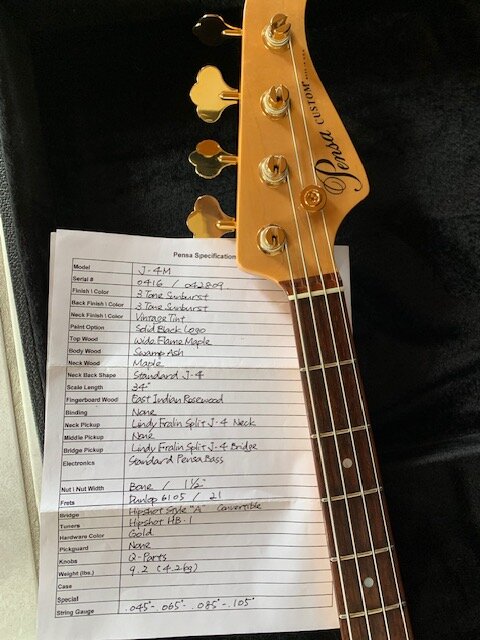 Pensa CUSTOM
Pensa Specification
Model J-4M
Serial # 0416 / 042809
Finish \ Color 3 Tone Sunburst
Back Finish \ Color 3 Tone Sunburst
Neck Finish \ Color Vintage Tint
Paint Option Solid Black Logo
Top Wood Wide Flame Maple
Body Wood Swamp Ash
Neck Wood Maple
Neck Back Shape Standard J-4
Scale Length 34"
Fingerboard Wood East Indian Rosewood
Binding None
Neck Pickup Lindy Fralin Split J-4 Neck
Middle Pickup None
Bridge Pickup Lindy Fralin Split J-4 Bridge
Electronics Standard Pensa Bass
Nut \ Nut Width Bone / 1½"
Frets Dunlop 6105 / 21
Bridge Hipshot Style "A" Convertible
Tuners Hipshot HB.1
Hardware Color Gold
Pickguard None
Knobs Q-Parts
Weight (lbs.) 9.2 (4.2kg)
Case
Special
String Gauge .045"- .065"- .085"- .105"